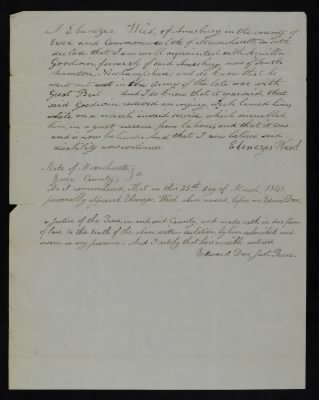 I Ebenezer Weed, of Amesbury in the county of
Essex and Commonwealth of Massachusetts on oath
declare that I am well acquainted with Aquilla
Goodwin, formerly of said Amesbury now of South
hampton, Newhampshire, and do know that he
went out in the Army of the late war with
Great Brit and I do know that it was said that
said Goodwin received an injury
while on a march inward service which disenabled
him in a great measure from labour; and that it was
and is now And that I now believe said
disability now continues. Ebenezer Weed
State of Massachusetts
Essex County, ss
Be it remembered, That on this 25th day of March 1841
personally appeared Ebenezer Weed above named, before me Edward Dorr
a Justice of the Peace, in and said County, and made oath in due form
of law, to the truth of the above written declaration, by him subscribed and
sworn in my presence. And I certify that he is a credible witness.
Edward Dorr Just. Peace.